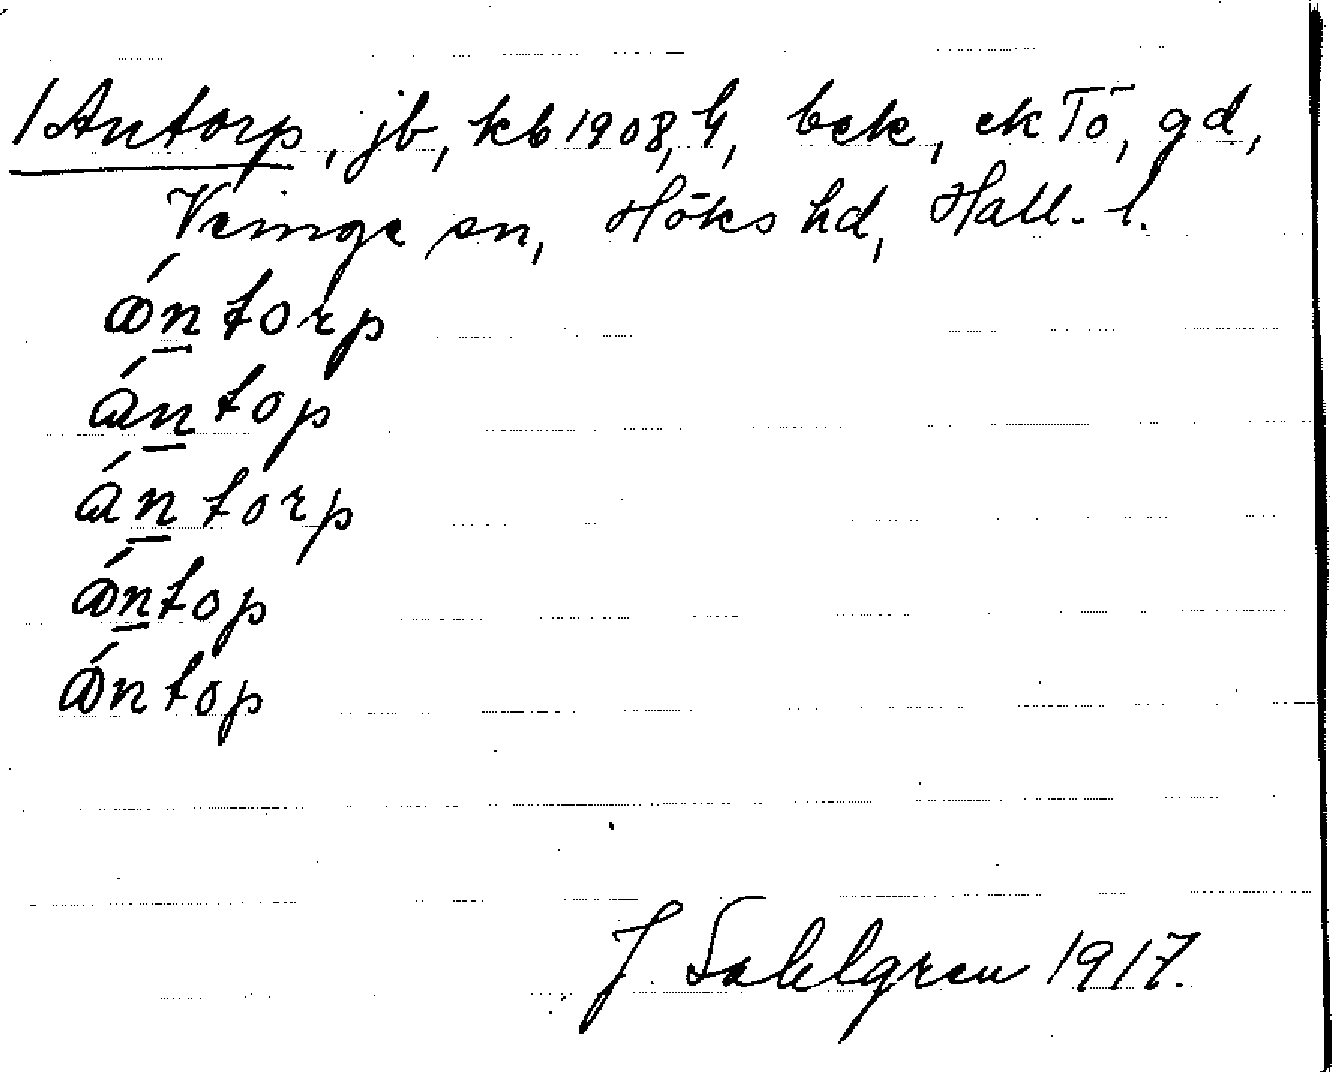 /Antorp, jb, kb 1908, h, bek, ek Tö, gd,
Veinge sn, Höks hd, Hall. l.
ántorp
ántop
ántorp
ántop
ántop
J. Sahlgren 1917.